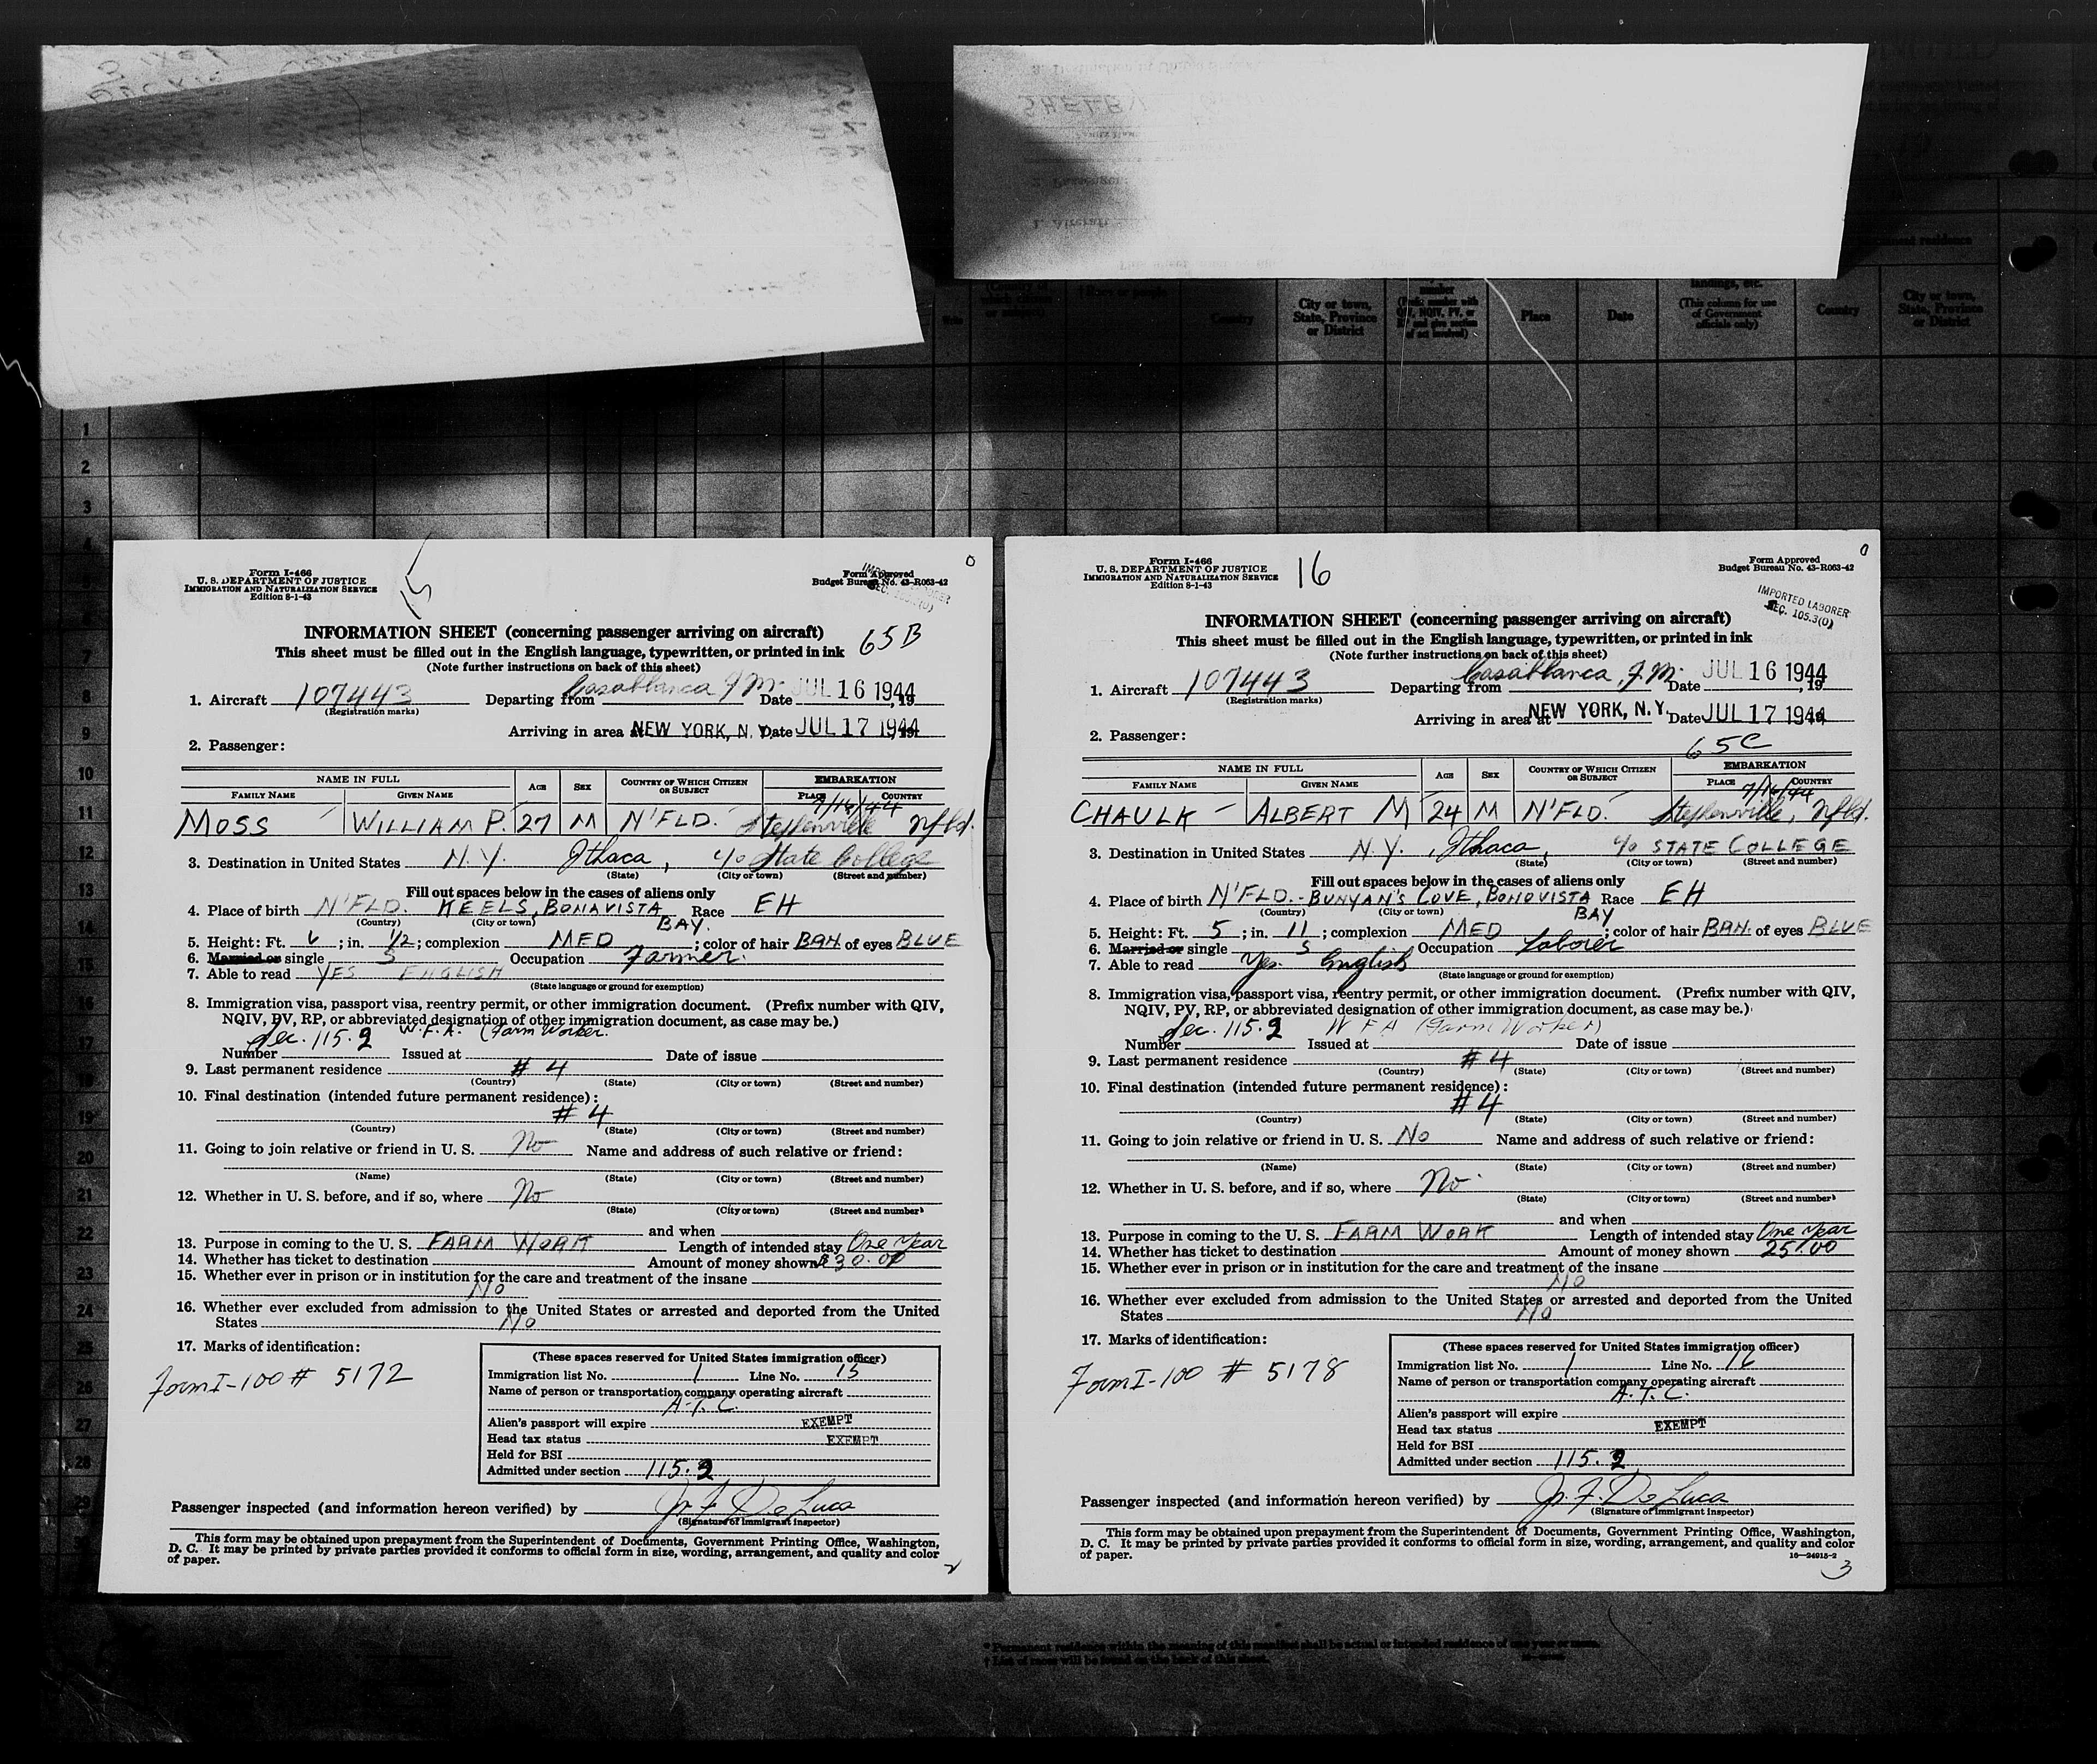 City or town,
State, Province
or District
Place
Date
(This column for use
of Government
officials only)
Country
City or town,
State, Province
or District
1
2
3
Form I-466
U. S. DEPARTMENT OF JUSTICE
IMMIGRATION AND NATURALIZATION SERVICE
Edition 8-1-43
15
Form Approved
Budget Bureau No. 43-R063-42
0
INFORMATION SHEET (concerning passenger arriving on aircraft)
65B
This sheet must be filled out in the English language, typewritten, or printed in ink
(Note further instructions on back of this sheet)
1. Aircraft 107443 Departing from Casablanca, F.M. Date JUL 16 1944, 19
(Registration marks)
Arriving in area at NEW YORK, N. Y. Date JUL 17 1944
2. Passenger:
NAME IN FULL AGE SEX COUNTRY OF WHICH CITIZEN OR SUBJECT EMBARKATION
FAMILY NAME GIVEN NAME PLACE COUNTRY
7/16/44
MOSS WILLIAM P. 27 M N'FLD. Stephenville Nfld.
3. Destination in United States N.Y. Ithaca, c/o State College
(State) (City or town) (Street and number)
Fill out spaces below in the cases of aliens only
4. Place of birth N'FLD. KEELS, BONAVISTA BAY. Race EH
(Country) (City or town)
5. Height: Ft. 6; in. 1/2; complexion MED; color of hair BRN. of eyes BLUE
6. Married or single S Occupation Farmer.
7. Able to read YES ENGLISH
(State language or ground for exemption)
8. Immigration visa, passport visa, reentry permit, or other immigration document. (Prefix number with QIV,
NQIV, PV, RP, or abbreviated designation of other immigration document, as case may be.)
Sec. 115.2 W.F.A. (Farm Worker.
Number Issued at Date of issue
9. Last permanent residence # 4
(Country) (State) (City or town) (Street and number)
10. Final destination (intended future permanent residence):
# 4
(Country) (State) (City or town) (Street and number)
11. Going to join relative or friend in U. S. No Name and address of such relative or friend:
(Name) (State) (City or town) (Street and number)
12. Whether in U. S. before, and if so, where No
(State) (City or town) (Street and number)
and when
13. Purpose in coming to the U. S. FARM WORK Length of intended stay One Year
14. Whether has ticket to destination Amount of money shown $30.00
15. Whether ever in prison or in institution for the care and treatment of the insane
No
16. Whether ever excluded from admission to the United States or arrested and deported from the United
States No
17. Marks of identification:
Form I-100 # 5172
(These spaces reserved for United States immigration officer)
Immigration list No. 1 Line No. 15
Name of person or transportation company operating aircraft
A.T.C.
Alien's passport will expire EXEMPT
Head tax status EXEMPT
Held for BSI
Admitted under section 115.2
Passenger inspected (and information hereon verified) by Jn. F. DeLuca
(Signature of immigrant inspector)
This form may be obtained upon prepayment from the Superintendent of Documents, Government Printing Office, Washington,
D. C. It may be printed by private parties provided it conforms to official form in size, wording, arrangement, and quality and color
of paper.
2
Form I-466
U. S. DEPARTMENT OF JUSTICE
IMMIGRATION AND NATURALIZATION SERVICE
Edition 8-1-43
16
Form Approved
Budget Bureau No. 43-R063-42
0
IMPORTED LABORER
SEC. 105.3(0)
INFORMATION SHEET (concerning passenger arriving on aircraft)
This sheet must be filled out in the English language, typewritten, or printed in ink
(Note further instructions on back of this sheet)
1. Aircraft 107443 Departing from Casablanca, F.M. Date JUL 16 1944, 19
(Registration marks)
Arriving in area at NEW YORK, N.Y. Date JUL 17 1944
2. Passenger:
65C
NAME IN FULL AGE SEX COUNTRY OF WHICH CITIZEN OR SUBJECT EMBARKATION
FAMILY NAME GIVEN NAME PLACE COUNTRY
7/16/44
CHAULK ALBERT M 24 M N'FLD. Stephenville, Nfld.
3. Destination in United States N.Y., Ithaca, c/o STATE COLLEGE
(State) (City or town) (Street and number)
Fill out spaces below in the cases of aliens only
4. Place of birth N'FLD. - BUNYAN'S COVE, BONOVISTA BAY Race EH
(Country) (City or town)
5. Height: Ft. 5; in. 11; complexion MED; color of hair BRN. of eyes BLUE
6. Married or single S Occupation Laborer
7. Able to read Yes. English
(State language or ground for exemption)
8. Immigration visa, passport visa, reentry permit, or other immigration document. (Prefix number with QIV,
NQIV, PV, RP, or abbreviated designation of other immigration document, as case may be.)
Sec. 115.2 W F A (Farm Worker)
Number Issued at Date of issue
9. Last permanent residence # 4
(Country) (State) (City or town) (Street and number)
10. Final destination (intended future permanent residence):
# 4
(Country) (State) (City or town) (Street and number)
11. Going to join relative or friend in U. S. No Name and address of such relative or friend:
(Name) (State) (City or town) (Street and number)
12. Whether in U. S. before, and if so, where No.
(State) (City or town) (Street and number)
and when
13. Purpose in coming to the U. S. FARM WORK Length of intended stay One Year
14. Whether has ticket to destination Amount of money shown 25.00
15. Whether ever in prison or in institution for the care and treatment of the insane
No
16. Whether ever excluded from admission to the United States or arrested and deported from the United
States No
17. Marks of identification:
Form I-100 # 5178
(These spaces reserved for United States immigration officer)
Immigration list No. 1 Line No. 16
Name of person or transportation company operating aircraft
A.T.C.
Alien's passport will expire
Head tax status EXEMPT
Held for BSI
Admitted under section 115.2
Passenger inspected (and information hereon verified) by Jn. F. DeLuca
(Signature of immigrant inspector)
This form may be obtained upon prepayment from the Superintendent of Documents, Government Printing Office, Washington,
D. C. It may be printed by private parties provided it conforms to official form in size, wording, arrangement, and quality and color
of paper.
16—24915-2
3
* Permanent residence within the meaning of this manifest shall be actual or intended residence of one year or more.
† List of races will be found on the back of this sheet.